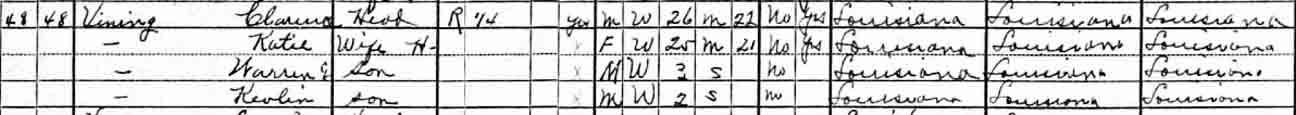 48 48 Vining Clarence Head R 14 yes M W 26 m 22 No Yes Louisiana Louisiana Louisiana
— Katie Wife H- x F W 25 m 21 No Yes Louisiana Louisiana Louisiana
— Warren E son x M W 3 s no Louisiana Louisiana Louisiana
— Kevlin son x m W 2 s no Louisiana Louisiana Louisiana